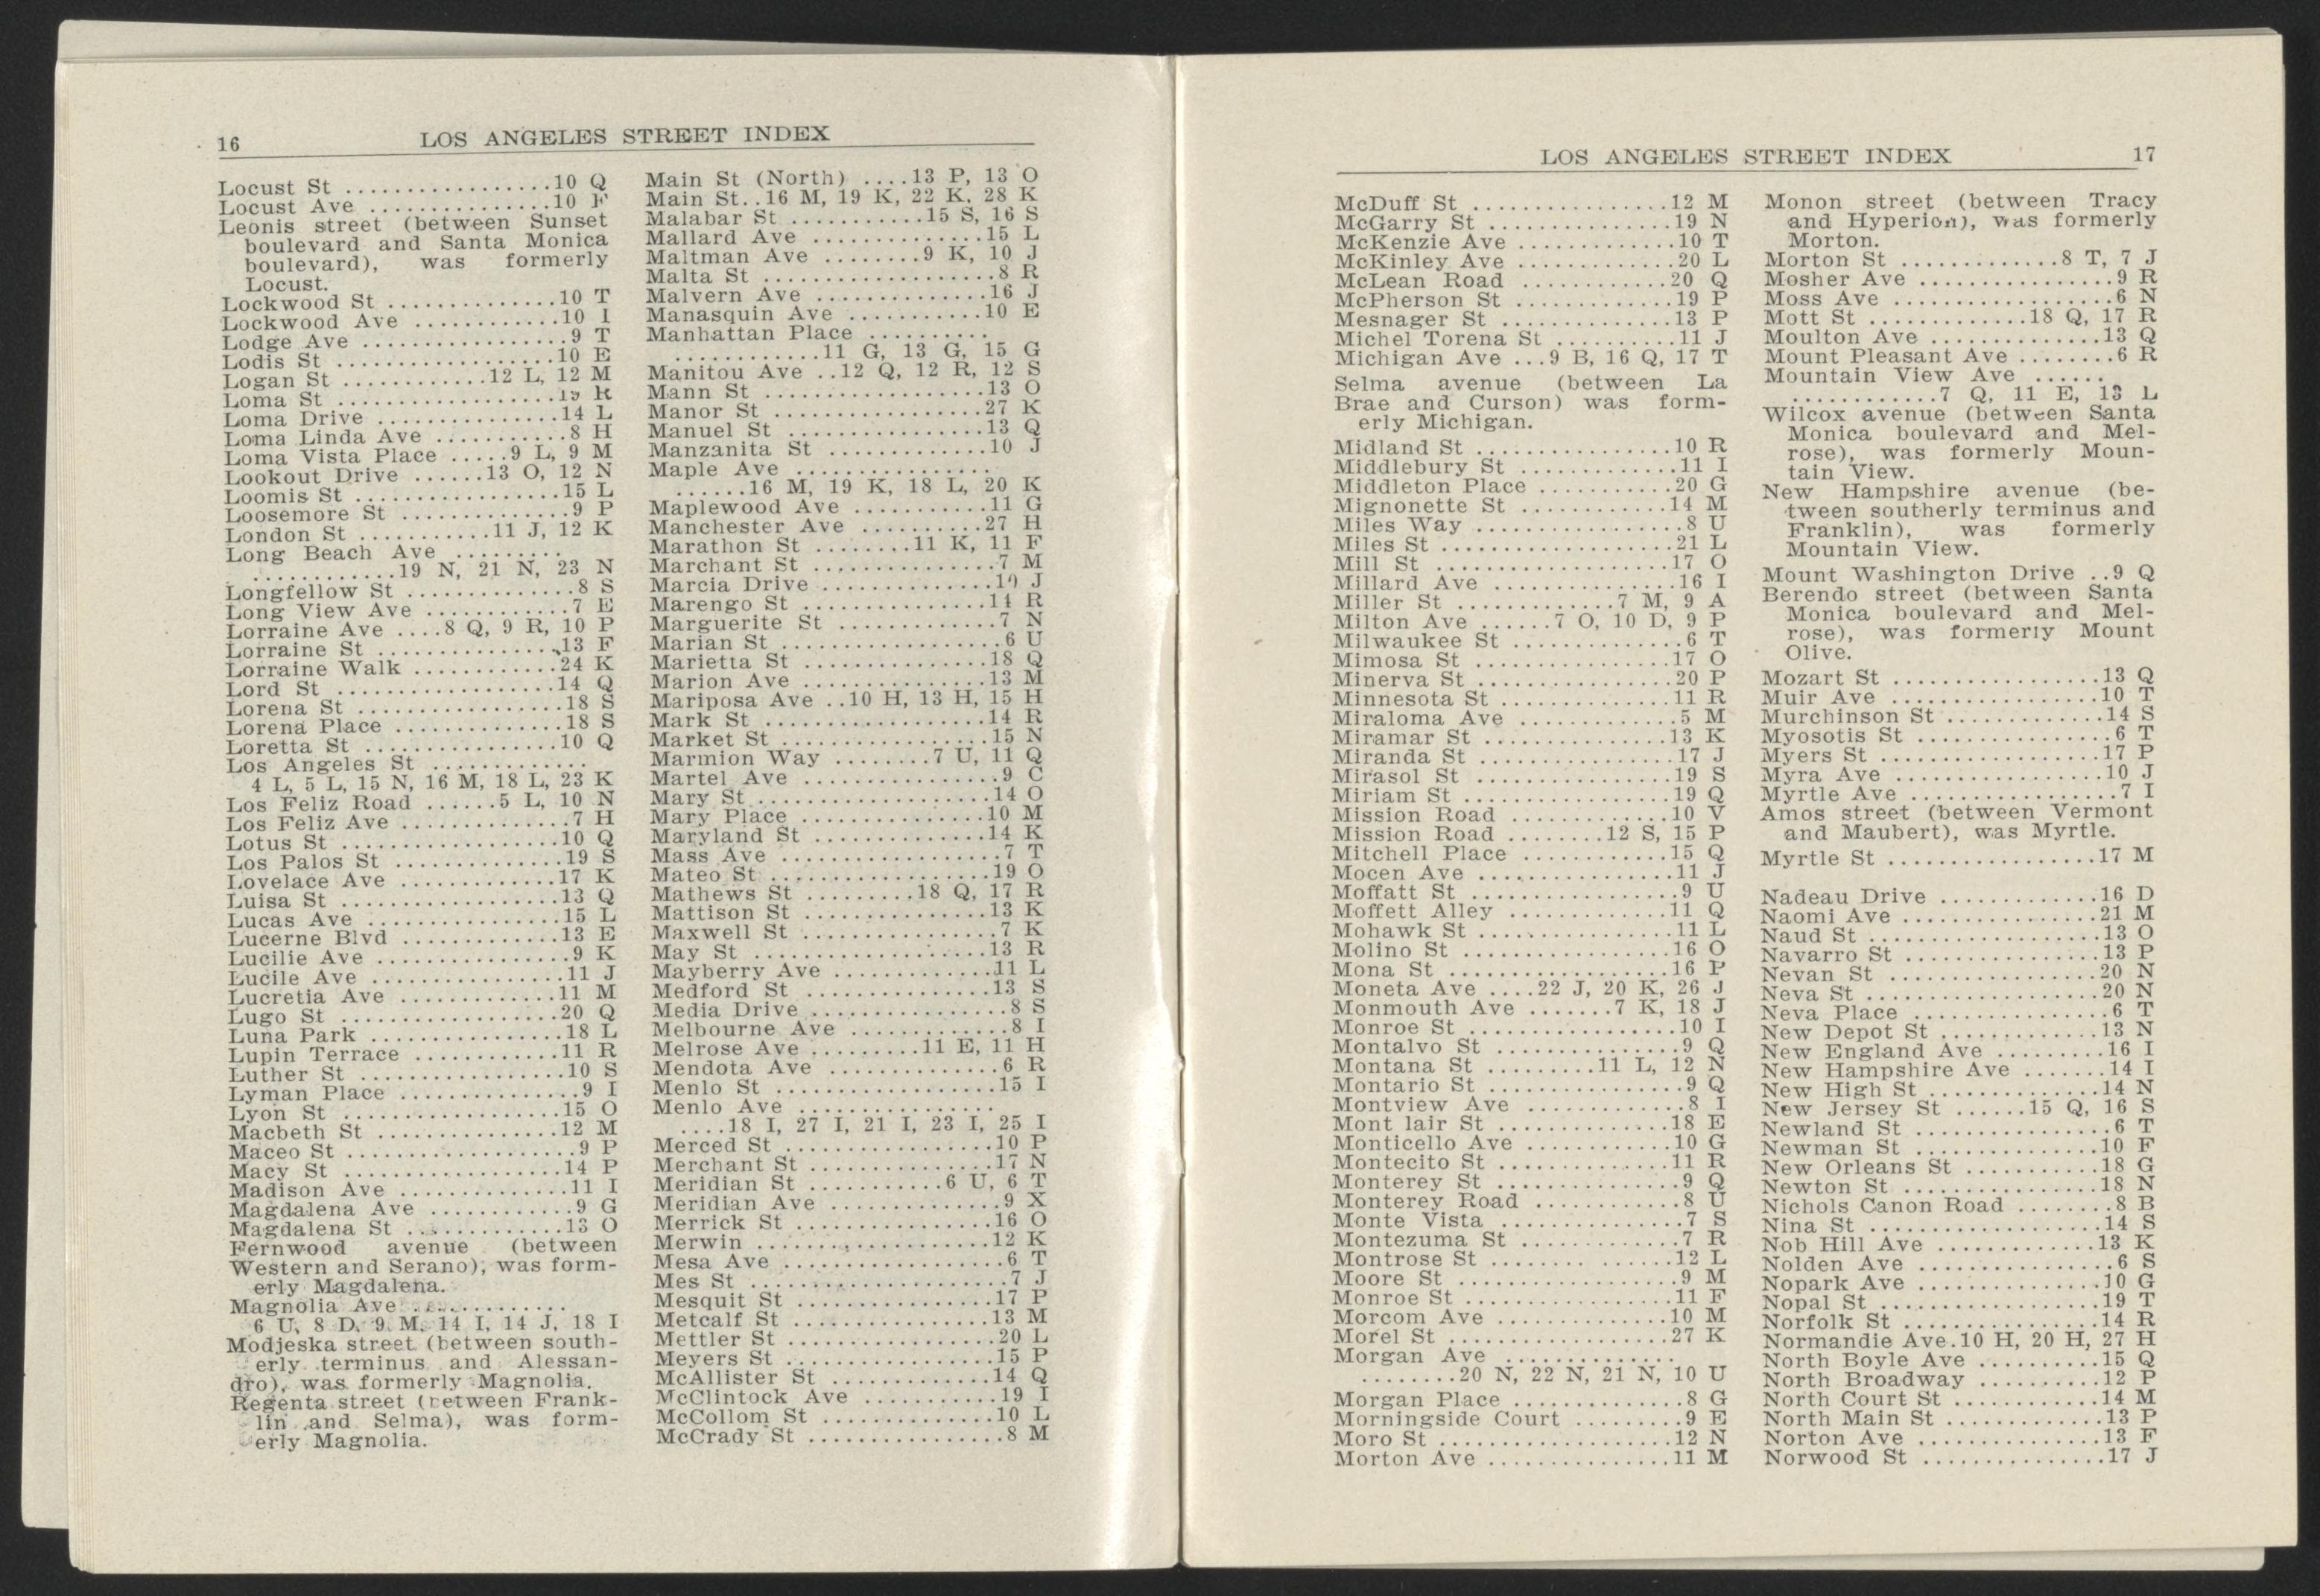 16
LOS ANGELES STREET INDEX
Locust St .................10 Q
Locust Ave ...............10 F
Leonis street (between Sunset
boulevard and Santa Monica
boulevard), was formerly
Locust.
Lockwood St ..............10 T
Lockwood Ave ............10 I
Lodge Ave .................9 T
Lodis St ...................10 E
Logan St ............12 L, 12 M
Loma St ..................19 K
Loma Drive ...............14 L
Loma Linda Ave ...........8 H
Loma Vista Place .....9 L, 9 M
Lookout Drive ......13 O, 12 N
Loomis St .................15 L
Loosemore St ..............9 P
London St ...........11 J, 12 K
Long Beach Ave .........
............19 N, 21 N, 23 N
Longfellow St ..............8 S
Long View Ave ............7 E
Lorraine Ave ....8 Q, 9 R, 10 P
Lorraine St ...............13 F
Lorraine Walk ............24 K
Lord St ..................14 Q
Lorena St ................18 S
Lorena Place ..............18 S
Loretta St ................10 Q
Los Angeles St .............
4 L, 5 L, 15 N, 16 M, 18 L, 23 K
Los Feliz Road ......5 L, 10 N
Los Feliz Ave ..............7 H
Lotus St ..................10 Q
Los Palos St ..............19 S
Lovelace Ave .............17 K
Luisa St .................13 Q
Lucas Ave ................15 L
Lucerne Blvd .............13 E
Lucilie Ave ................9 K
Lucile Ave ...............11 J
Lucretia Ave .............11 M
Lugo St ..................20 Q
Luna Park ................18 L
Lupin Terrace ............11 R
Luther St .................10 S
Lyman Place ...............9 I
Lyon St ..................15 O
Macbeth St ...............12 M
Maceo St ...................9 P
Macy St ..................14 P
Madison Ave ..............11 I
Magdalena Ave ............9 G
Magdalena St .............13 O
Fernwood avenue (between
Western and Serano), was form-
erly Magdalena.
Magnolia Ave .............
6 U, 8 D, 9 M, 14 I, 14 J, 18 I
Modjeska street (between south-
erly terminus and Alessan-
dro), was formerly Magnolia.
Regenta street (between Frank-
lin and Selma), was form-
erly Magnolia.
Main St (North) ....13 P, 13 O
Main St..16 M, 19 K, 22 K, 28 K
Malabar St ...........15 S, 16 S
Mallard Ave ..............15 L
Maltman Ave ........9 K, 10 J
Malta St ...................8 R
Malvern Ave ..............16 J
Manasquin Ave ...........10 E
Manhattan Place ..........
............11 G, 13 G, 15 G
Manitou Ave ..12 Q, 12 R, 12 S
Mann St ..................13 O
Manor St .................27 K
Manuel St ................13 Q
Manzanita St .............10 J
Maple Ave ................
......16 M, 19 K, 18 L, 20 K
Maplewood Ave ...........11 G
Manchester Ave ..........27 H
Marathon St ........11 K, 11 F
Marchant St ...............7 M
Marcia Drive ..............10 J
Marengo St ...............14 R
Marguerite St .............7 N
Marian St ..................6 U
Marietta St ...............18 Q
Marion Ave ...............13 M
Mariposa Ave ..10 H, 13 H, 15 H
Mark St ..................14 R
Market St .................15 N
Marmion Way ........7 U, 11 Q
Martel Ave ................9 C
Mary St...................14 O
Mary Place ...............10 M
Maryland St ..............14 K
Mass Ave ..................7 T
Mateo St ..................19 O
Mathews St ..........18 Q, 17 R
Mattison St ...............13 K
Maxwell St ................7 K
May St ...................13 R
Mayberry Ave .............11 L
Medford St ...............13 S
Media Drive ................8 S
Melbourne Ave .............8 I
Melrose Ave .........11 E, 11 H
Mendota Ave ..............6 R
Menlo St ..................15 I
Menlo Ave ................
....18 I, 27 I, 21 I, 23 I, 25 I
Merced St .................10 P
Merchant St ...............17 N
Meridian St ...........6 U, 6 T
Meridian Ave ..............9 X
Merrick St ................16 O
Merwin ...................12 K
Mesa Ave ..................6 T
Mes St .....................7 J
Mesquit St ................17 P
Metcalf St ................13 M
Mettler St ................20 L
Meyers St .................15 P
McAllister St .............14 Q
McClintock Ave ...........19 I
McCollom St ..............10 L
McCrady St ................8 M
LOS ANGELES STREET INDEX
17
McDuff St ................12 M
McGarry St ...............19 N
McKenzie Ave .............10 T
McKinley Ave .............20 L
McLean Road ............20 Q
McPherson St .............19 P
Mesnager St ..............13 P
Michel Torena St ..........11 J
Michigan Ave ...9 B, 16 Q, 17 T
Selma avenue (between La
Brae and Curson) was form-
erly Michigan.
Midland St ................10 R
Middlebury St .............11 I
Middleton Place ...........20 G
Mignonette St .............14 M
Miles Way .................8 U
Miles St ...................21 L
Mill St ...................17 O
Millard Ave ...............16 I
Miller St .............7 M, 9 A
Milton Ave ......7 O, 10 D, 9 P
Milwaukee St ..............6 T
Mimosa St ................17 O
Minerva St ................20 P
Minnesota St ..............11 R
Miraloma Ave .............5 M
Miramar St ...............13 K
Miranda St ................17 J
Mirasol St ................19 S
Miriam St .................19 Q
Mission Road .............10 V
Mission Road ........12 S, 15 P
Mitchell Place ............15 Q
Mocen Ave ................11 J
Moffatt St .................9 U
Moffett Alley .............11 Q
Mohawk St ................11 L
Molino St .................16 O
Mona St ..................16 P
Moneta Ave ....22 J, 20 K, 26 J
Monmouth Ave .......7 K, 18 J
Monroe St .................10 I
Montalvo St ...............9 Q
Montana St .........11 L, 12 N
Montario St ................9 Q
Montview Ave .............8 I
Mont lair St ...............18 E
Monticello Ave ............10 G
Montecito St ..............11 R
Monterey St ...............9 Q
Monterey Road ............8 U
Monte Vista ...............7 S
Montezuma St .............7 R
Montrose St ........ ......12 L
Moore St ..................9 M
Monroe St .................11 F
Morcom Ave ..............10 M
Morel St ..................27 K
Morgan Ave ..............
........20 N, 22 N, 21 N, 10 U
Morgan Place ..............8 G
Morningside Court .........9 E
Moro St ...................12 N
Morton Ave ...............11 M
Monon street (between Tracy
and Hyperion), was formerly
Morton.
Morton St .............8 T, 7 J
Mosher Ave ................9 R
Moss Ave ..................6 N
Mott St .............18 Q, 17 R
Moulton Ave ..............13 Q
Mount Pleasant Ave ........6 R
Mountain View Ave ......
............7 Q, 11 E, 13 L
Wilcox avenue (between Santa
Monica boulevard and Mel-
rose), was formerly Moun-
tain View.
New Hampshire avenue (be-
tween southerly terminus and
Franklin), was formerly
Mountain View.
Mount Washington Drive ..9 Q
Berendo street (between Santa
Monica boulevard and Mel-
rose), was formerly Mount
Olive.
Mozart St .................13 Q
Muir Ave .................10 T
Murchinson St .............14 S
Myosotis St ................6 T
Myers St ..................17 P
Myra Ave .................10 J
Myrtle Ave .................7 I
Amos street (between Vermont
and Maubert), was Myrtle.
Myrtle St .................17 M
Nadeau Drive .............16 D
Naomi Ave ................21 M
Naud St ...................13 O
Navarro St ................13 P
Nevan St .................20 N
Neva St ...................20 N
Neva Place ................6 T
New Depot St .............13 N
New England Ave .........16 I
New Hampshire Ave .......14 I
New High St ..............14 N
New Jersey St ......15 Q, 16 S
Newland St ................6 T
Newman St ...............10 F
New Orleans St ...........18 G
Newton St ................18 N
Nichols Canon Road ........8 B
Nina St ...................14 S
Nob Hill Ave .............13 K
Nolden Ave ................6 S
Nopark Ave ...............10 G
Nopal St ..................19 T
Norfolk St ................14 R
Normandie Ave.10 H, 20 H, 27 H
North Boyle Ave ..........15 Q
North Broadway ..........12 P
North Court St ............14 M
North Main St .............13 P
Norton Ave ...............13 F
Norwood St ...............17 J